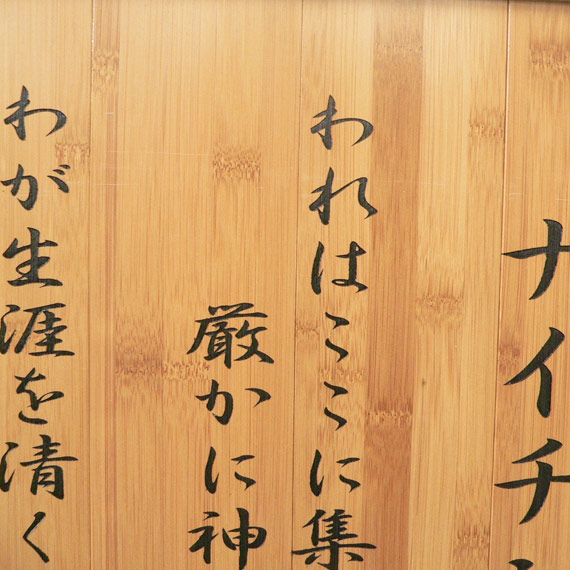 ナイチ
われはここに集
厳かに神
わが生涯を清く